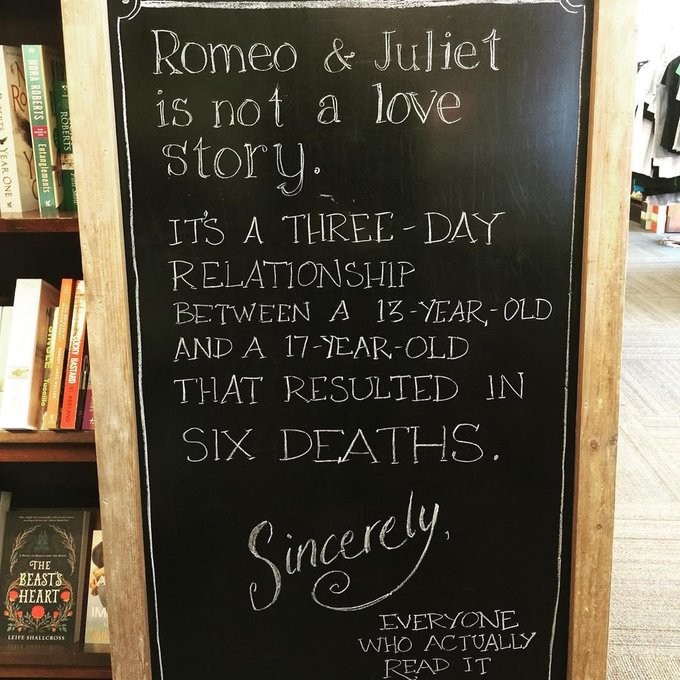 Romeo & Juliet
is not a love
story.
IT'S A THREE-DAY
RELATIONSHIP
BETWEEN A 13-YEAR-OLD
AND A 17-YEAR-OLD
THAT RESULTED IN
SIX DEATHS.
Sincerely,
EVERYONE
WHO ACTUALLY
READ IT
NORA ROBERTS Entanglements
ROBERTS
YEAR ONE
THE
BEAST'S
HEART
LEIFE SHALLCROSS